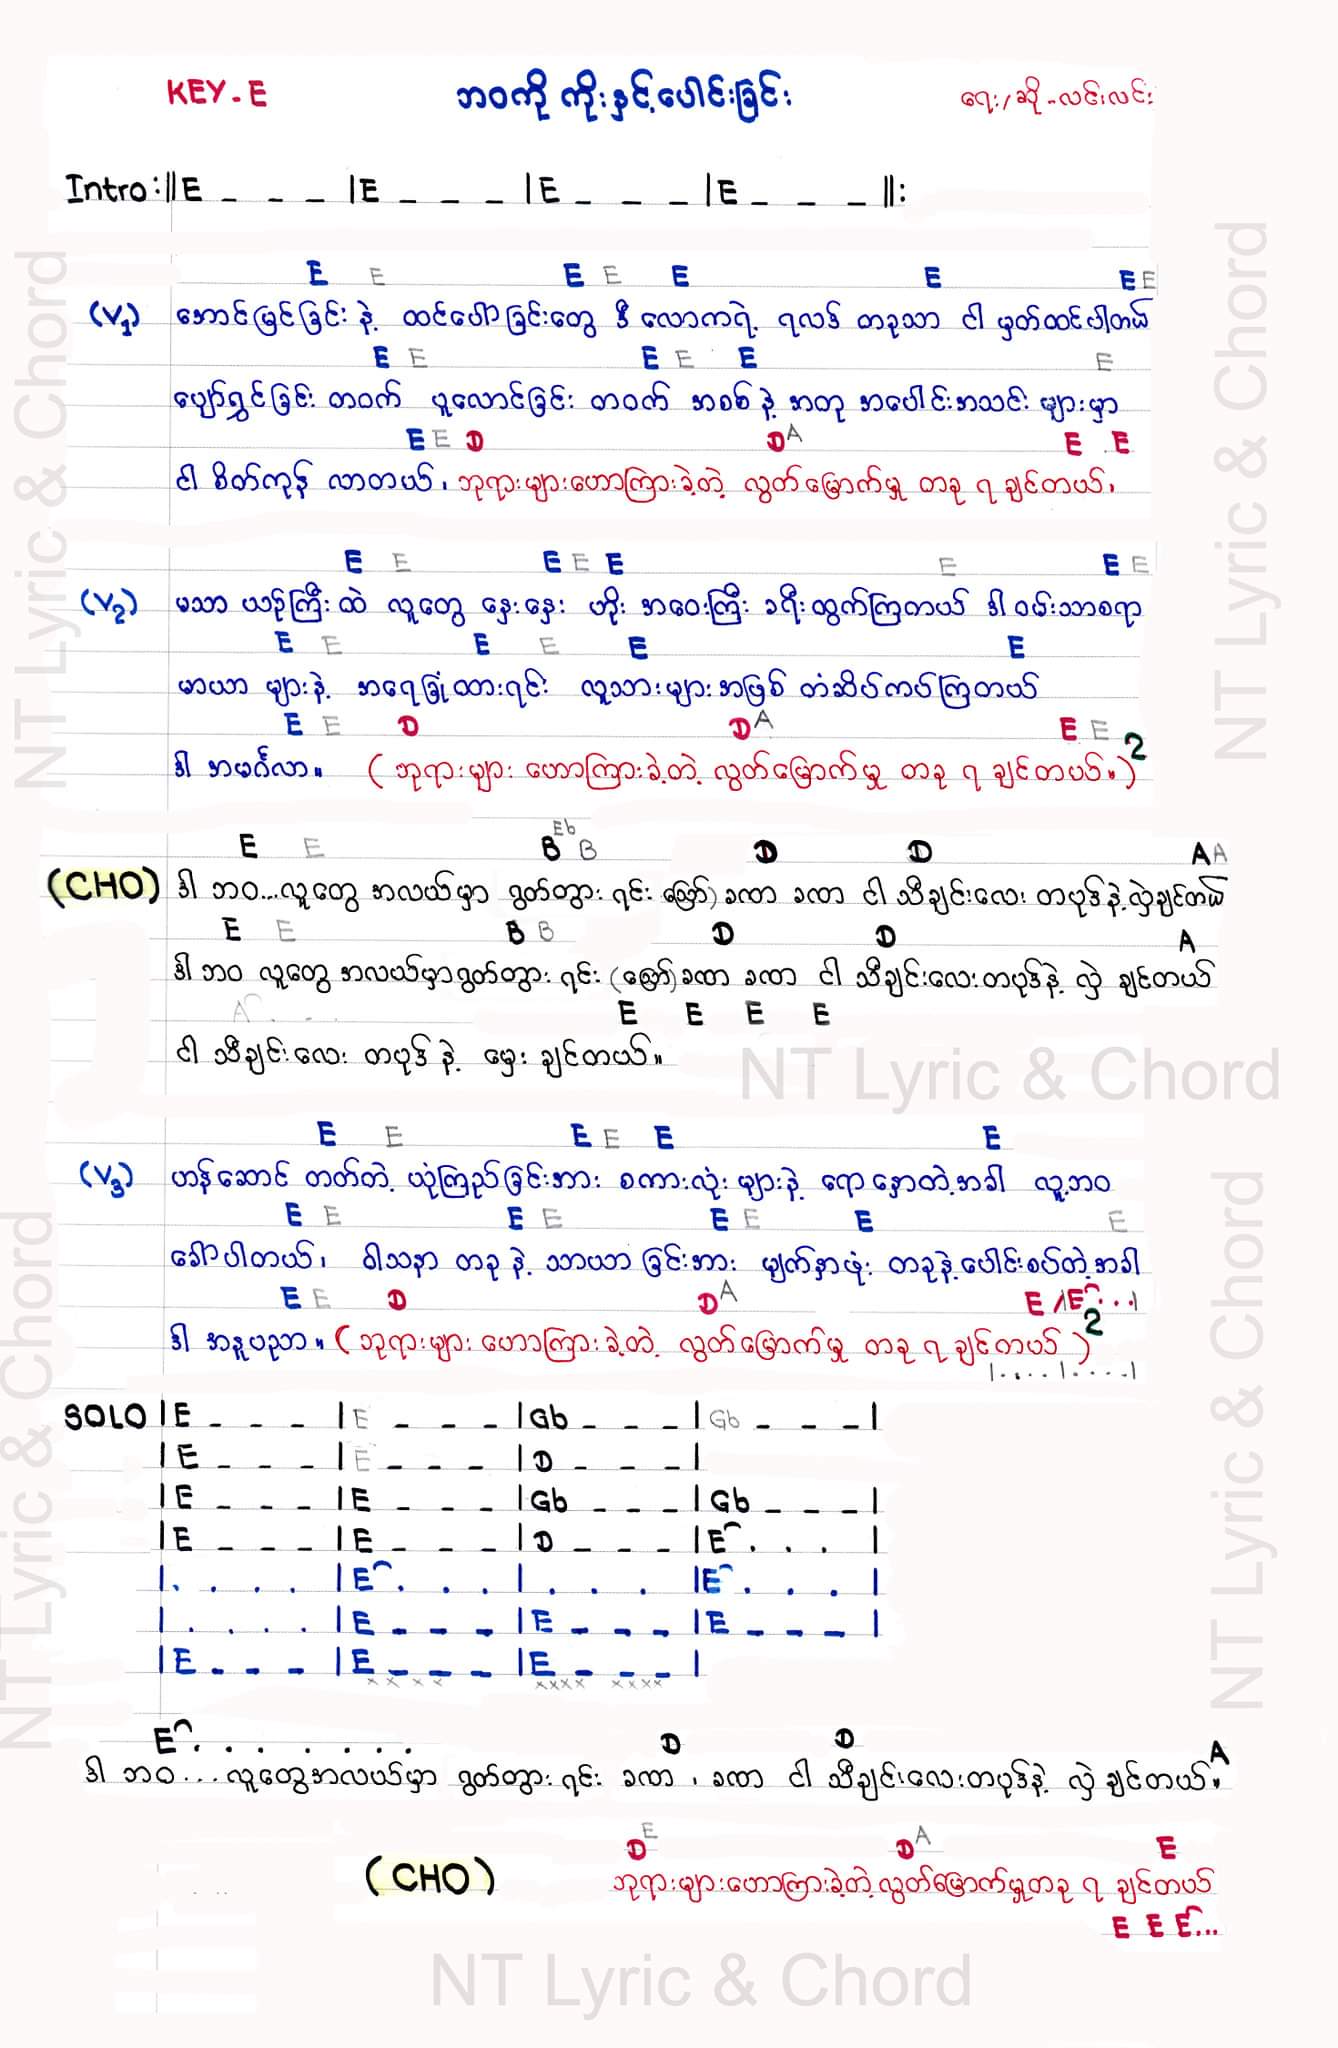 KEY-E ဘဝကို ကိုးနှင့်ပေါင်းခြင်း ရေး/ဆို-လင်းလင်း
Intro:||E _ _ _ |E _ _ _ |E _ _ _ |E _ _ _ ||:
E E E E E E E E
(V1) အောင်မြင်ခြင်း နဲ့ ထင်ပေါ်ခြင်းတွေ ဒီ လောကရဲ့ ရလဒ် တခုသာ ငါ မှတ်ထင်ပါတယ်
E E E E E E
ပျော်ရွှင်ခြင်း တဝက် ပူလောင်ခြင်း တဝက် အစစ် နဲ့ အတု အပေါင်းအသင်း များမှာ
E E D D A E E
ငါ စိတ်ကုန် လာတယ်၊ ဘုရားများဟောကြားခဲ့တဲ့ လွတ်မြောက်မှု တခု ရ ချင်တယ်၊
E E E E E E E E
(V2) မသာ ယဉ်ကြီး ထဲ လူတွေ နှေးနှေး ဟိုး အဝေးကြီး ခရီးထွက်ကြတယ် ဒါ ဝမ်းသာစရာ
E E E E E E
မာယာ များနဲ့ အရေခြုံထားရင်း လူသားများအဖြစ် တံဆိပ်ကပ်ကြတယ်
E E D D A E E 2
ဒါ အမင်္ဂလာ။ (ဘုရားများ ဟောကြားခဲ့တဲ့ လွတ်မြောက်မှု တခု ရ ချင်တယ်။)
E E B Eb B D D A A
(CHO) ဒါ ဘဝ...လူတွေ အလယ်မှာ ရွတ်တွား ရင်း (ဪ) ခဏ ခဏ ငါ သီချင်းလေး တပုဒ်နဲ့ လှဲချင်တယ်
E E B B D D A
ဒါ ဘဝ လူတွေ အလယ်မှာရွတ်တွား ရင်း (ဪ) ခဏ ခဏ ငါ သီချင်းလေးတပုဒ်နဲ့ လှဲ ချင်တယ်
A E E E E
ငါ သီချင်းလေး တပုဒ် နဲ့ မှေး ချင်တယ်။
E E E E E E
(V3) ဟန်ဆောင် တတ်တဲ့ ယုံကြည်ခြင်းအား စကားလုံး များနဲ့ ရောနှောတဲ့အခါ လူ့ဘဝ
E E E E E E E E
ခေါ်ပါတယ်၊ ဝါသနာ တခု နဲ့ သာယာ ခြင်းအား မျက်နှာဖုံး တခုနဲ့ပေါင်းစပ်တဲ့အခါ
E E D D A E /E...|
ဒါ အနုပညာ။ (ဘုရားများ ဟောကြားခဲ့တဲ့ လွတ်မြောက်မှု တခု ရ ချင်တယ်) 2
|....|....|
SOLO |E _ _ _ |E _ _ _ |Gb _ _ _ |Gb _ _ _ |
|E _ _ _ |E _ _ _ |D _ _ _ |
|E _ _ _ |E _ _ _ |Gb _ _ _ |Gb _ _ _ |
|E _ _ _ |E _ _ _ |D _ _ _ |E . . . |
|. . . . |E . . . |. . . . |E . . . |
|. . . . |E _ _ _ |E _ _ _ |E _ _ _ |
|E _ _ _ |E _ _ _ |E _ _ _ |
x x x x xxxx xxxx
E . . . . . . . D D A
ဒါ ဘဝ...လူတွေအလယ်မှာ ရွတ်တွား ရင်း ခဏ ၊ ခဏ ငါ သီချင်းလေးတပုဒ်နဲ့ လှဲ ချင်တယ်။
D E D A E
(CHO) ဘုရားများဟောကြားခဲ့တဲ့ လွတ်မြောက်မှုတခု ရ ချင်တယ်
E E E...
NT Lyric & Chord
NT Lyric & Chord
NT Lyric & Chord
NT Lyric & Chord
NT Lyric & Chord
NT Lyric & Chord